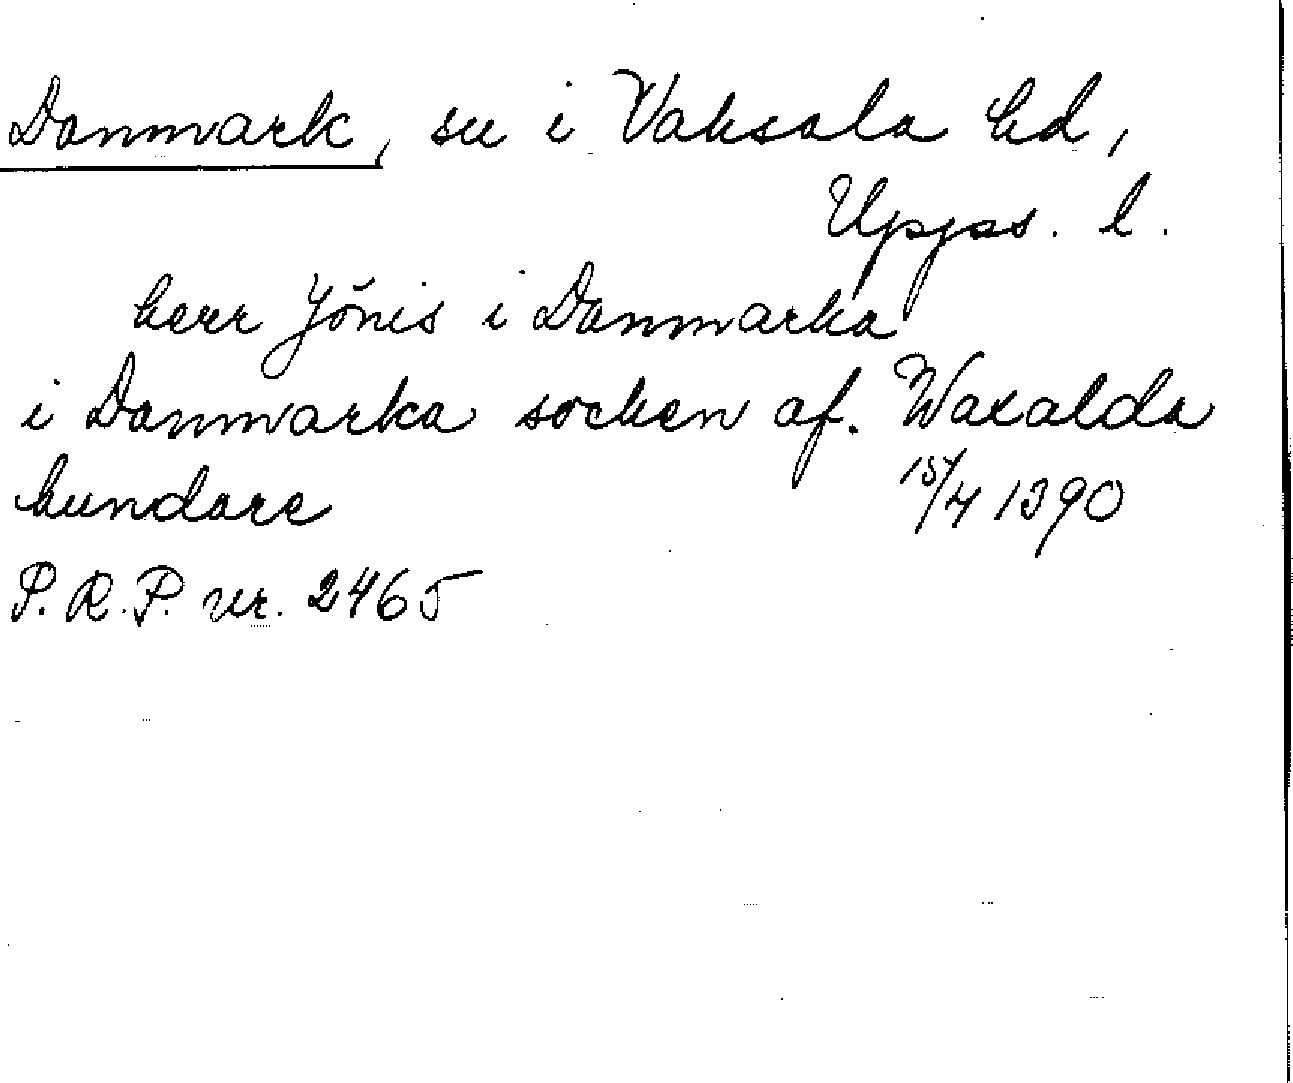 Danmark, sn i Vaksala hd,
Upps. l.
herr Jönis i Danmarka
i Danmarka socken af. Waxalda
hundare 15/4 1390
P.R.P. nr. 2465